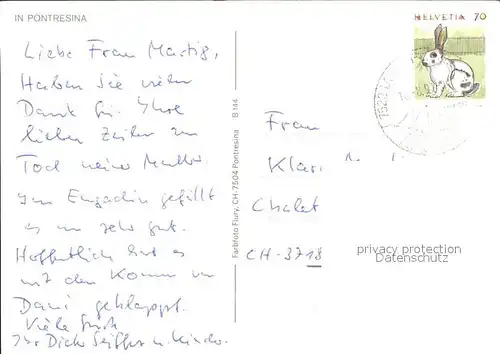 IN PONTRESINA
Liebe Frau Mattig,
Haben Sie vielen
Dank für Ihre
lieben Zeilen zum
Tod meiner Mutter.
Im Engadin gefällt
es uns sehr gut.
Hoffentlich hat es
mit dem Komm von
Dani geklappt.
Viele Grüße
Ihr Dieter Seiffert u. Kinder.
Farbfoto Flury, CH-7504 Pontresina B 144
HELVETIA 70
Frau
Klara
Chalet
CH-3718
privacy protection
Datenschutz